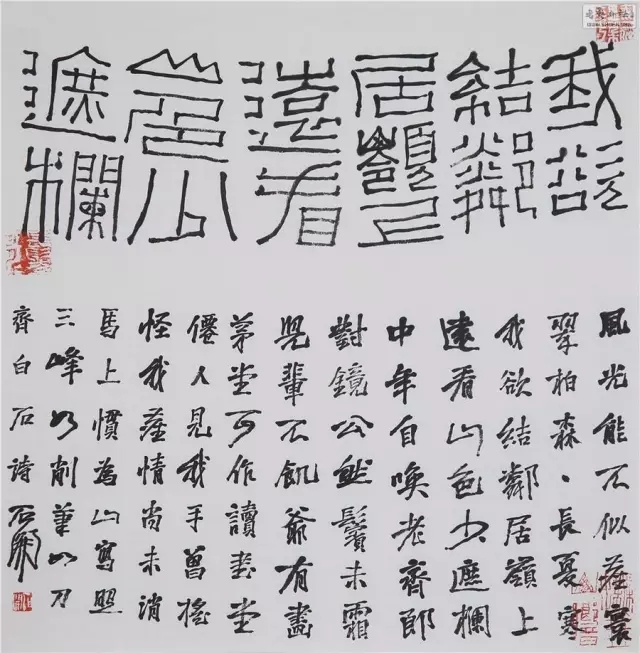 我欲
結鄰
居嶺上
遠看
山色少
遮欄
風光能不似
翠柏森、長夏寒
我欲結鄰居嶺上
遠看山色少遮欄
中年自喚老齊郎
對鏡公然鬢未霜
兒輩不飢爺有畫
茅堂可作讀書堂
僊人見我手曾搖
怪我塵情尚未消
馬上慣為山寫照
三峰如削筆如刀
齊白石詩 石開